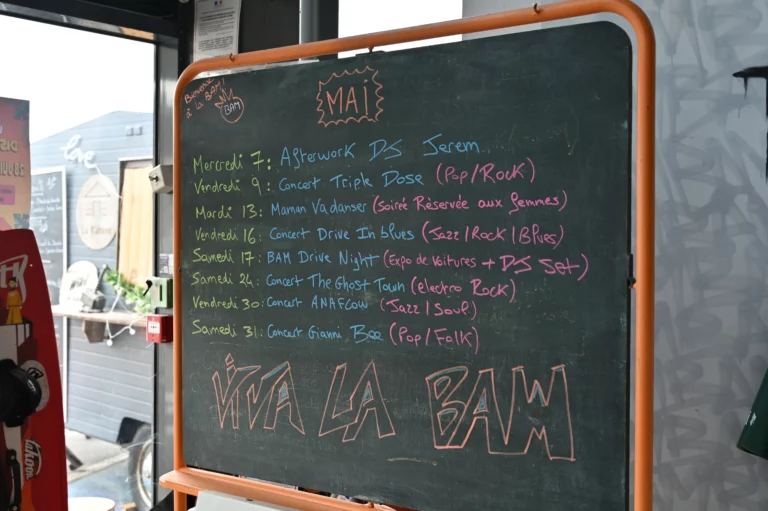 Bienvenue
à la BAM!
BAM
MAI
Mercredi 7: Afterwork DJ Jerem
Vendredi 9: Concert Triple Dose (Pop/Rock)
Mardi 13: Maman Va danser (Soirée Réservée aux femmes)
Vendredi 16: Concert Drive In blues (Jazz/Rock/Blues)
Samedi 17: BAM Drive Night (Expo de Voitures + DJ Set)
Samedi 24: Concert The Ghost Town (électro Rock)
Vendredi 30: Concert ANAFLOW (Jazz/Soul)
Samedi 31: Concert Gianni Bee (Pop/Folk)
VIVA LA BAM
love